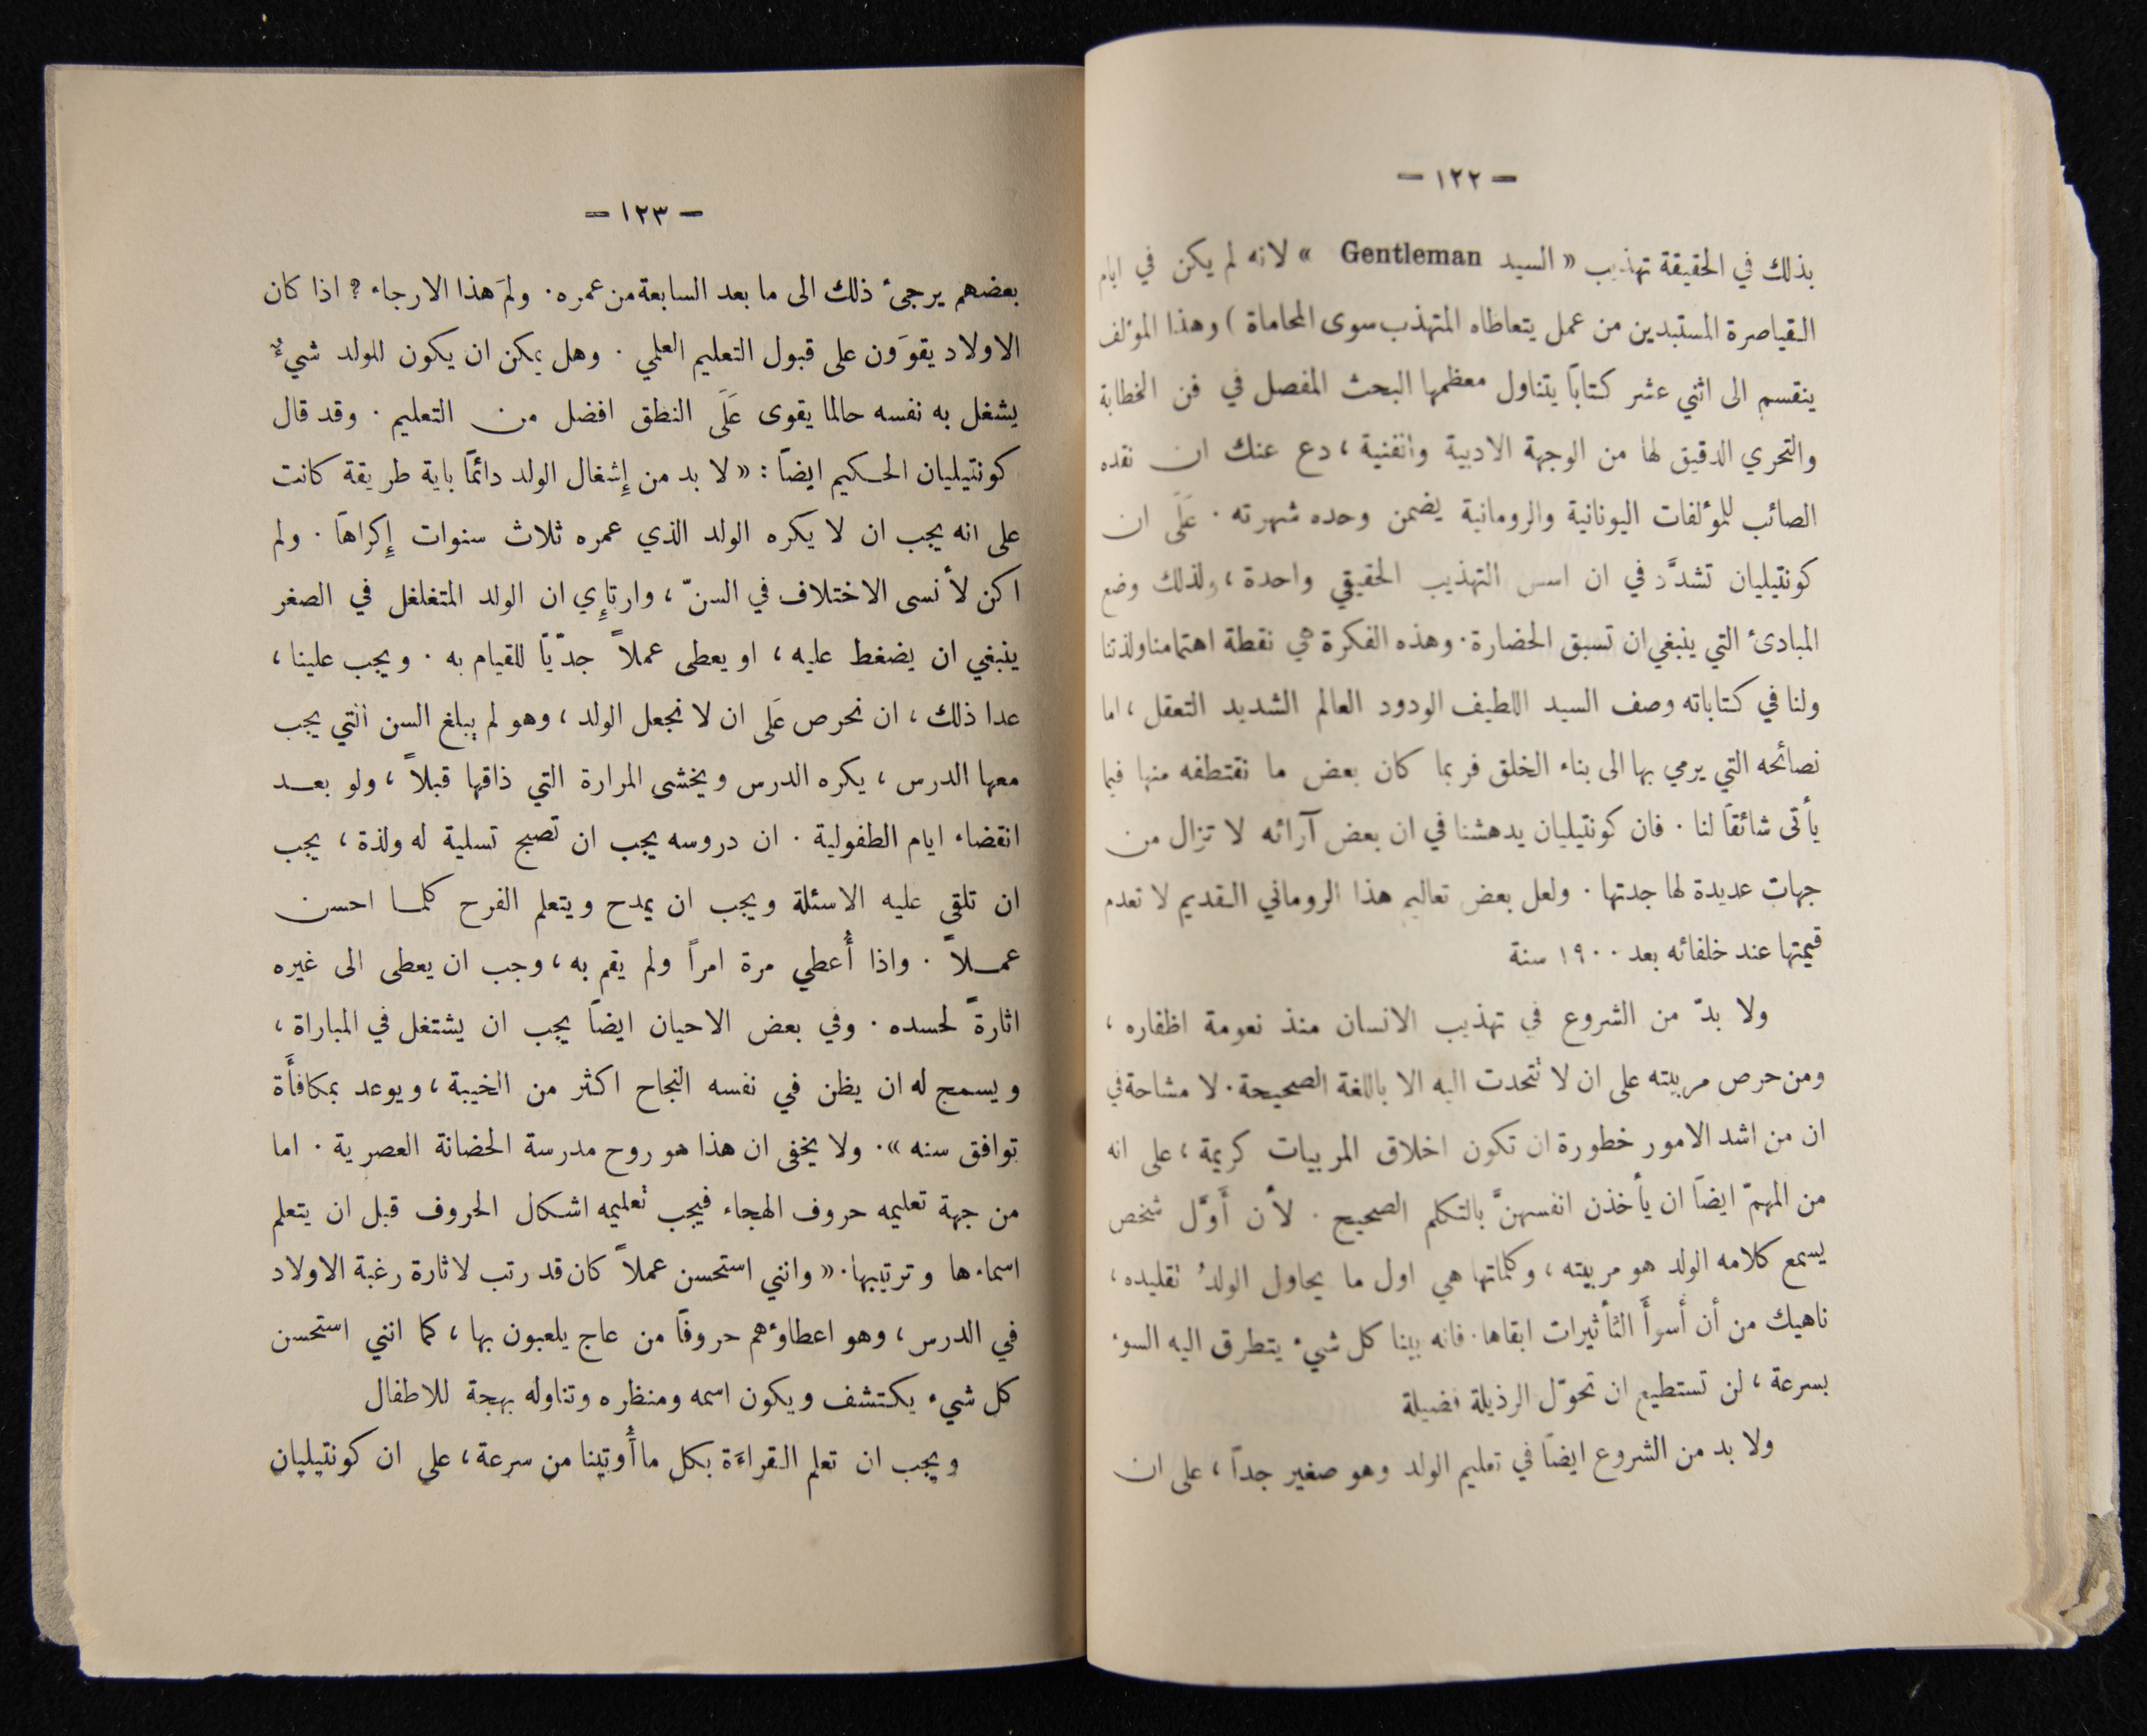 — ١٢٢ —
بذلك في الحقيقة تهذيب « السيد Gentleman » لانه لم يكن في ايام
القياصرة المستبدين من عمل يتعاطاه المتهذب سوى المحاماة ) وهذا المؤلف
ينقسم الى اثني عشر كتاباً يتناول معظمها البحث المفصل في فن الخطابة
والتحري الدقيق لها من الوجهة الادبية والفنية ، دع عنك ان نقده
الصائب للمؤلفات اليونانية والرومانية يضمن وحده شهرته . عَلَى ان
كونتيليان تشدَّد في ان اسس التهذيب الحقيقي واحدة ، ولذلك وضع
المبادئ التي ينبغي ان تسبق الحضارة . وهذه الفكرة هي نقطة اهتمامنا ولذتنا
ولنا في كتاباته وصف السيد اللطيف الودود العالم الشديد التعقل ، اما
نصائحه التي يرمي بها الى بناء الخلق فربما كان بعض ما نقتطفه منها فيما
يأتى شائقاً لنا . فان كونتيليان يدهشنا في ان بعض آرائه لا تزال من
جهات عديدة لها جدتها . ولعل بعض تعاليم هذا الروماني القديم لا تعدم
قيمتها عند خلفائه بعد ١٩٠٠ سنة
ولا بدّ من الشروع في تهذيب الانسان منذ نعومة اظفاره ،
ومن حرص مربيته على ان لا تتحدث اليه الا باللغة الصحيحة . لا مشاحة في
ان من اشد الامور خطورة ان تكون اخلاق المربيات كريمة ، على انه
من المهمّ ايضاً ان يأخذن انفسهنَّ بالتكلم الصحيح . لأن أَوَّل شخص
يسمع كلامه الولد هو مربيته ، وكلماتها هي اول ما يحاول الولدُ تقليده ،
ناهيك من أن أسوأَ التأثيرات ابقاها . فانه بينا كل شيء يتطرق اليه السوء
بسرعة ، لن تستطيع ان تحوّل الرذيلة فضيلة
ولا بد من الشروع ايضاً في تعليم الولد وهو صغير جداً ، على ان
— ١٢٣ —
بعضهم يرجئ ذلك الى ما بعد السابعة من عمره . ولِمَ هذا الارجاء ؟ اذا كان
الاولاد يقوَون على قبول التعليم العلمي . وهل يمكن ان يكون للولد شيءٌ
يشغل به نفسه حالما يقوى عَلَى النطق افضل من التعليم . وقد قال
كونتيليان الحكيم ايضاً : « لا بد من إِشغال الولد دائماً باية طريقة كانت
على انه يجب ان لا يكره الولد الذي عمره ثلاث سنوات إِكراهاً . ولم
اكن لأنسى الاختلاف في السنّ ، وارتإِي ان الولد المتغلغل في الصغر
ينبغي ان يضغط عليه ، او يعطى عملاً جدّيّاً للقيام به . ويجب علينا ،
عدا ذلك ، ان نحرص عَلَى ان لا نجعل الولد ، وهو لم يبلغ السن التي يجب
معها الدرس ، يكره الدرس ويخشى المرارة التي ذاقها قبلاً ، ولو بعد
انقضاء ايام الطفولية . ان دروسه يجب ان تصبح تسلية له ولذة ، يجب
ان تلقى عليه الاسئلة ويجب ان يمدح ويتعلم الفرح كلما احسن
عملاً . واذا أُعطي مرة امراً ولم يقم به ، وجب ان يعطى الى غيره
اثارةً لحسده . وفي بعض الاحيان ايضاً يجب ان يشتغل في المباراة ،
ويسمح له ان يظن في نفسه النجاح اكثر من الخيبة ، ويوعد بمكافأَة
توافق سنه » . ولا يخفى ان هذا هو روح مدرسة الحضانة العصرية . اما
من جهة تعليمه حروف الهجاء فيجب تعليمه اشكال الحروف قبل ان يتعلم
اسماءها وترتيبها . « وانني استحسن عملاً كان قد رتب لاثارة رغبة الاولاد
في الدرس ، وهو اعطاؤهم حروفاً من عاج يلعبون بها ، كما انني استحسن
كل شيء يكتشف ويكون اسمه ومنظره وتناوله بهجة للاطفال
ويجب ان تعلم القراءة بكل ما أُوتينا من سرعة ، على ان كونتيليان